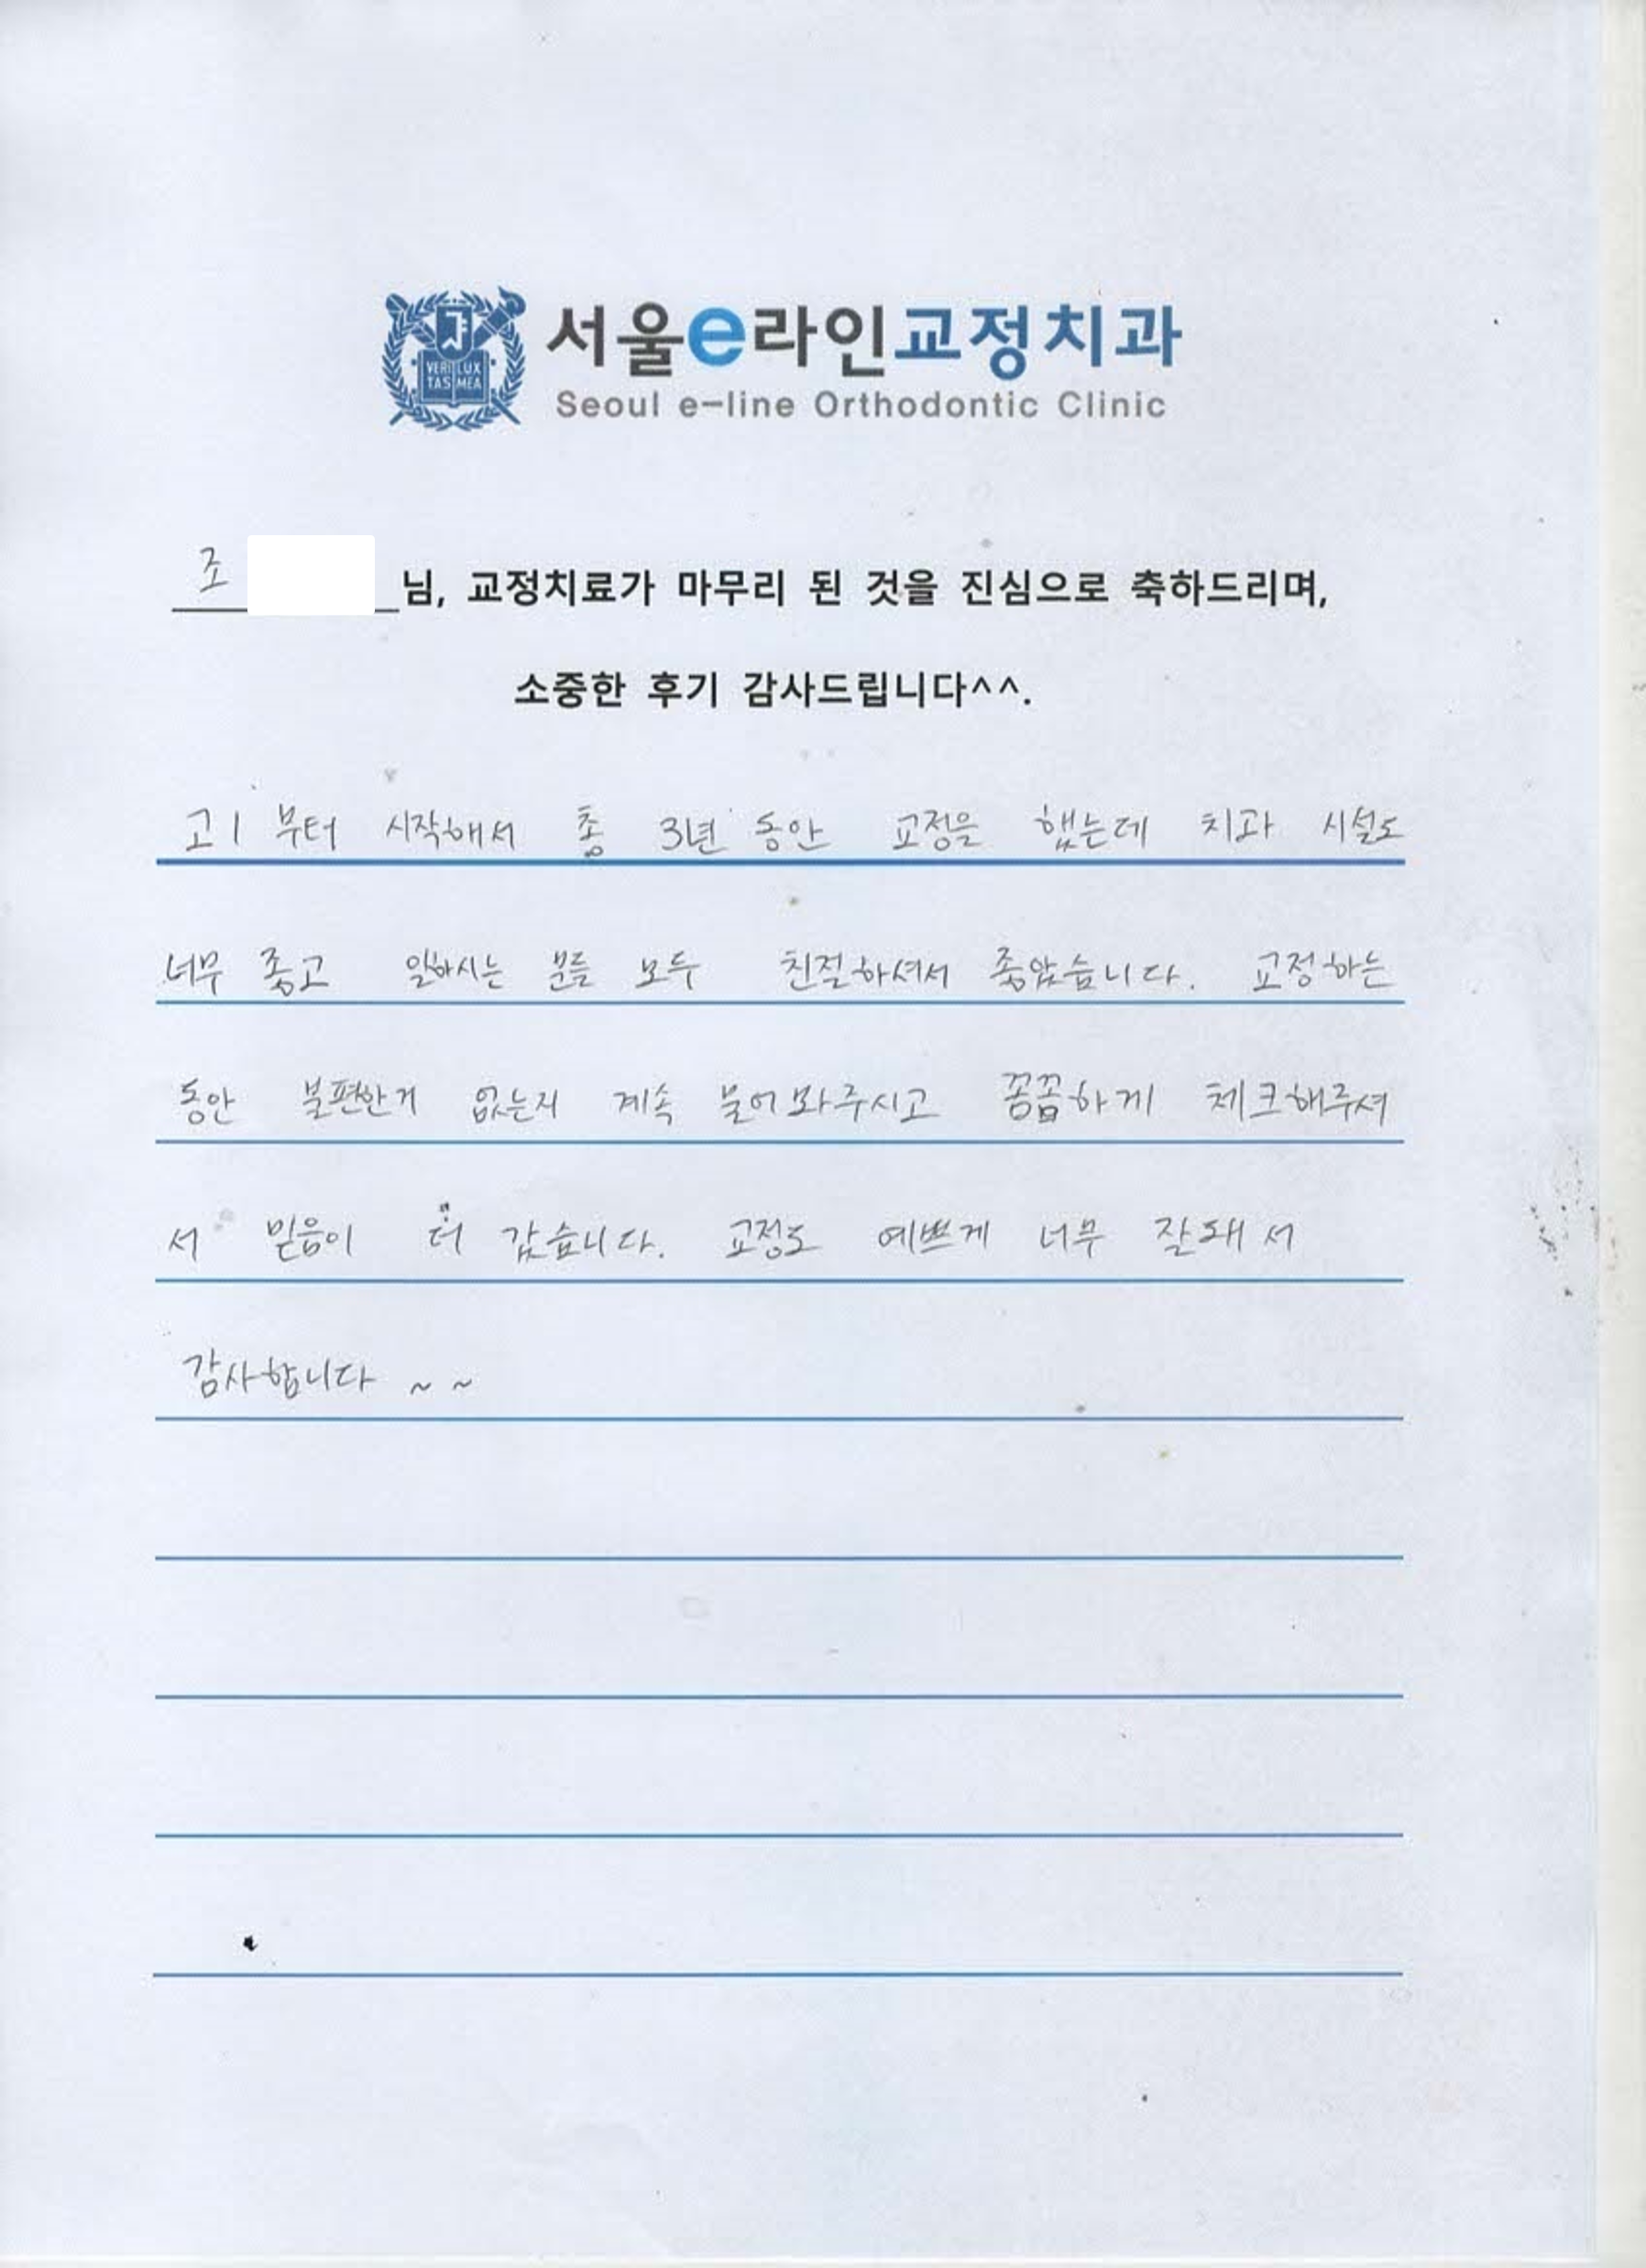 VERI LUX
TAS MEA
서울e라인교정치과
Seoul e-line Orthodontic Clinic
조 님, 교정치료가 마무리 된 것을 진심으로 축하드리며,
소중한 후기 감사드립니다^^.
고1 부터 시작해서 총 3년 동안 교정을 했는데 치과 시설도
너무 좋고 일하시는 분들 모두 친절하셔서 좋았습니다. 교정하는
동안 불편한거 없는지 계속 물어봐주시고 꼼꼼하게 체크해주셔
서 믿음이 더 갔습니다. 교정도 예쁘게 너무 잘돼서
감사합니다 ~ ~